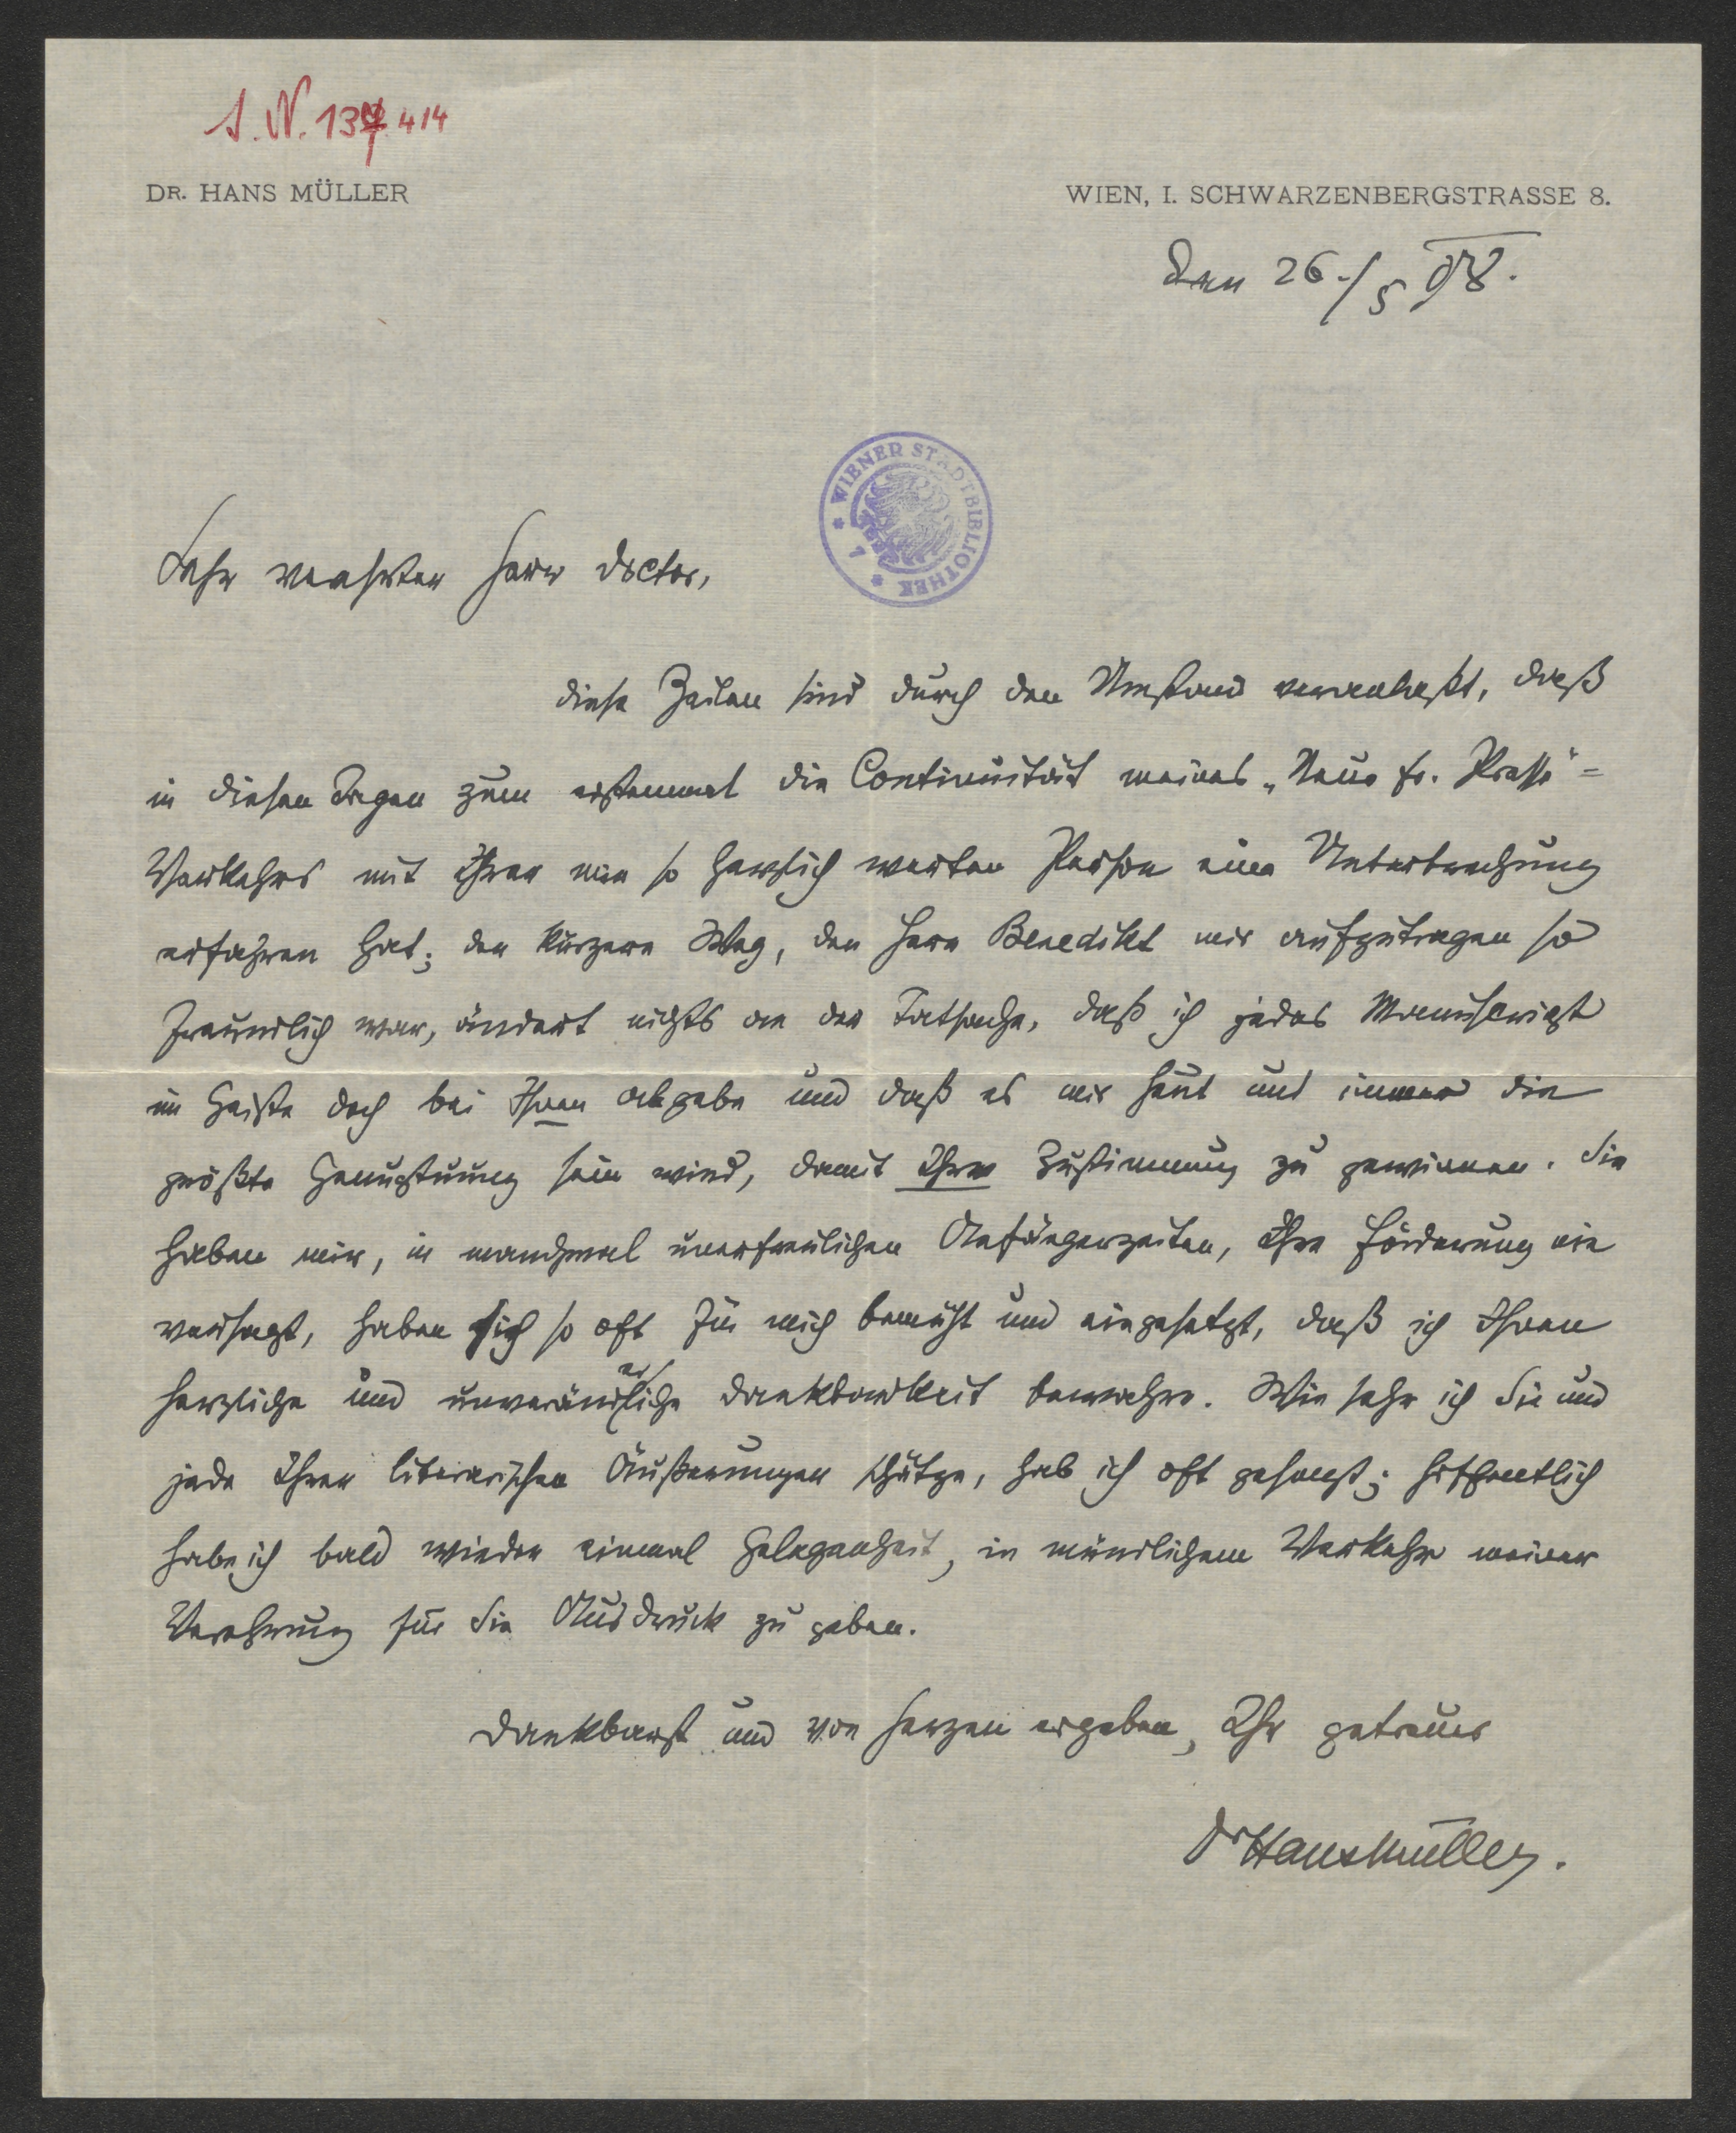 I. N. 137.414
DR. HANS MÜLLER
WIEN, I. SCHWARZENBERGSTRASSE 8.
Den 26./5 08.
WIENER STADTBIBLIOTHEK
Sehr verehrter Herr Doctor,
diese Zeilen sind durch den Umstand veranlaßt, daß
in diesen Tagen zum erstenmal die Continuität meines „Neue fr. Presse"=
Verkehrs mit Ihrer mir so herzlich werten Person eine Unterbrechung
erfahren hat; der kürzere Weg, den Herr Benedikt mir aufzutragen so
freundlich war, ändert nichts an der Tatsache, daß ich jedes Manuscript
im Geiste doch bei Ihnen abgebe und daß es mir heut und immer die
größte Genugtuung sein wird, damit Ihre Zustimmung zu gewinnen. Sie
haben mir, in manchmal unerfreulichen Anfängerzeiten, Ihre Förderung nie
versagt, haben sich so oft für mich bemüht und eingesetzt, daß ich Ihnen
herzliche und unveränderliche Dankbarkeit bewahre. Wie sehr ich Sie und
jede Ihrer literarischen Äußerungen schätze, hab ich oft gesagt; hoffentlich
habe ich bald wieder einmal Gelegenheit, in mündlichem Verkehr meiner
Verehrung für Sie Ausdruck zu geben.
Dankbarst und von Herzen ergeben, Ihr getreuer
Dr Hans Müller.